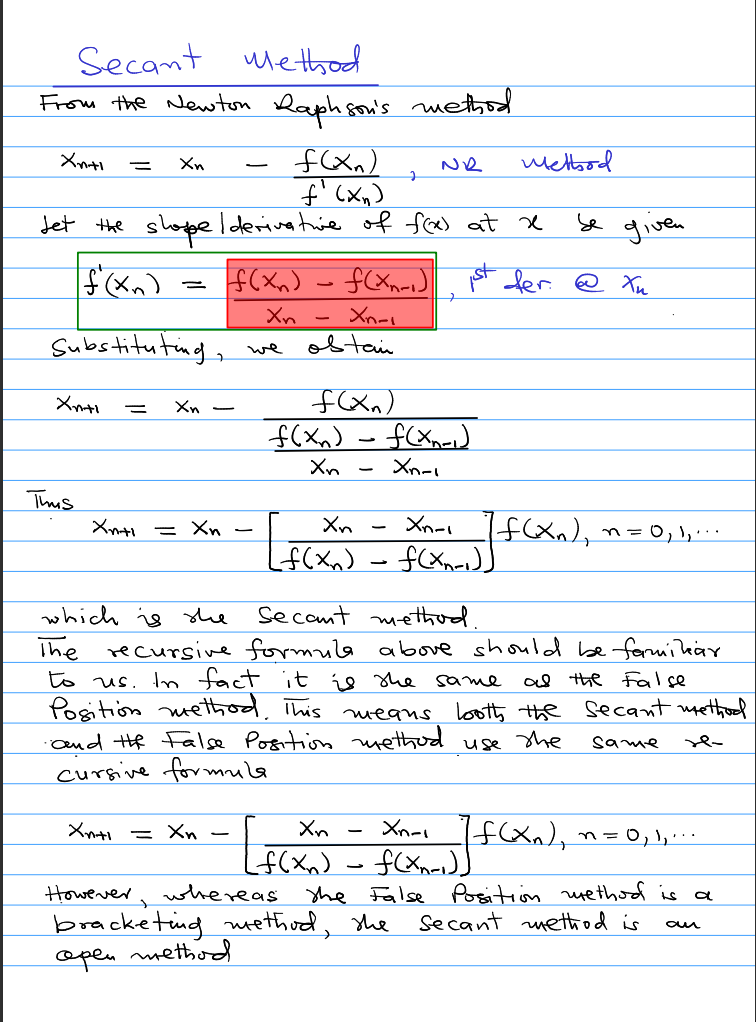 Secant Method
From the Newton Raphson's method
x_{n+1} = x_n - f(x_n) / f'(x_n), NR Method
Let the slope/derivative of f(x) at x be given
f'(x_n) = (f(x_n) - f(x_{n-1})) / (x_n - x_{n-1}), 1st der. @ x_n
Substituting, we obtain
x_{n+1} = x_n - f(x_n) / ((f(x_n) - f(x_{n-1})) / (x_n - x_{n-1}))
Thus
x_{n+1} = x_n - [(x_n - x_{n-1}) / (f(x_n) - f(x_{n-1}))] f(x_n), n = 0, 1, ...
which is the Secant method.
The recursive formula above should be familiar
to us. In fact it is the same as the False
Position method. This means both the Secant method
and the False Position method use the same re-
cursive formula
x_{n+1} = x_n - [(x_n - x_{n-1}) / (f(x_n) - f(x_{n-1}))] f(x_n), n = 0, 1, ...
However, whereas the False Position method is a
bracketing method, the Secant method is an
open method